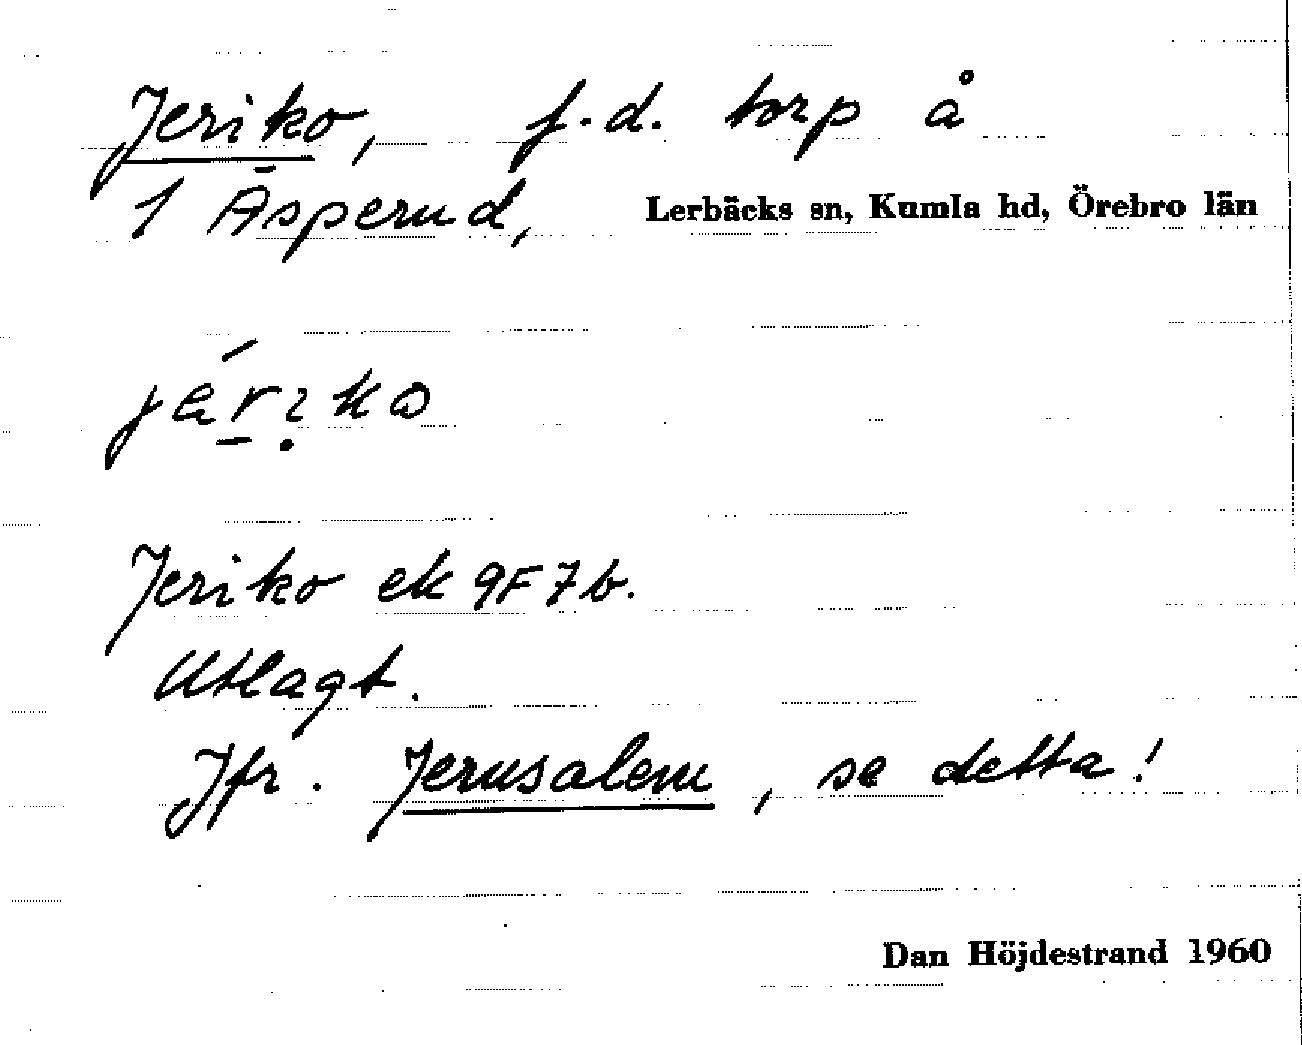 Jeriko, f.d. torp å
1 Äsperud, Lerbäcks sn, Kumla hd, Örebro län
järiko
Jeriko ek 9F7b.
Utlagt.
Jfr. Jerusalem, se detta!
Dan Höjdestrand 1960